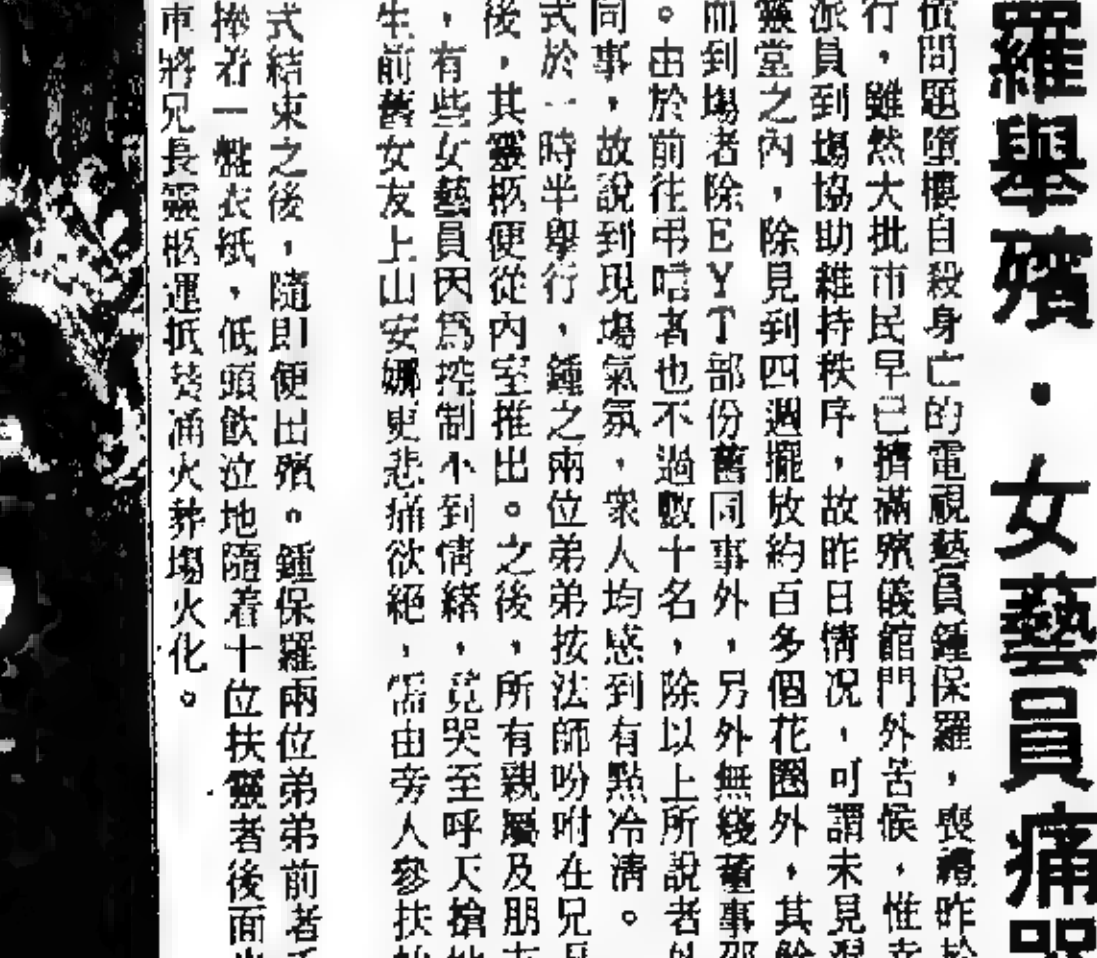 羅舉殯・女藝員痛哭
債問題墮樓自殺身亡的電視藝員鍾保羅，喪禮昨於
行，雖然大批市民早已擠滿殯儀館門外苦候，惟幸
派員到場協助維持秩序，故昨日情況，可謂未見混
靈堂之內，除見到四週擺放約百多個花圈外，其餘
而到場者除EYT部份舊同事外，另外無綫董事邵
。由於前往弔唁者也不過數十名，除以上所說者外
同事，故說到現場氣氛，衆人均感到有點冷清。
式於一時半舉行，鍾之兩位弟弟按法師吩咐在兄
後，其靈柩便從內室推出。之後，所有親屬及朋友
，有些女藝員因爲控制不到情緒，竟哭至呼天搶地
生前舊女友上山安娜更悲痛欲絕，需由旁人參扶
式結束之後，隨即便出殯。鍾保羅兩位弟弟前者手
捧者一盤衣紙，低頭飲泣地隨着十位扶靈者後面
車將兄長靈柩運抵葵涌火葬場火化。